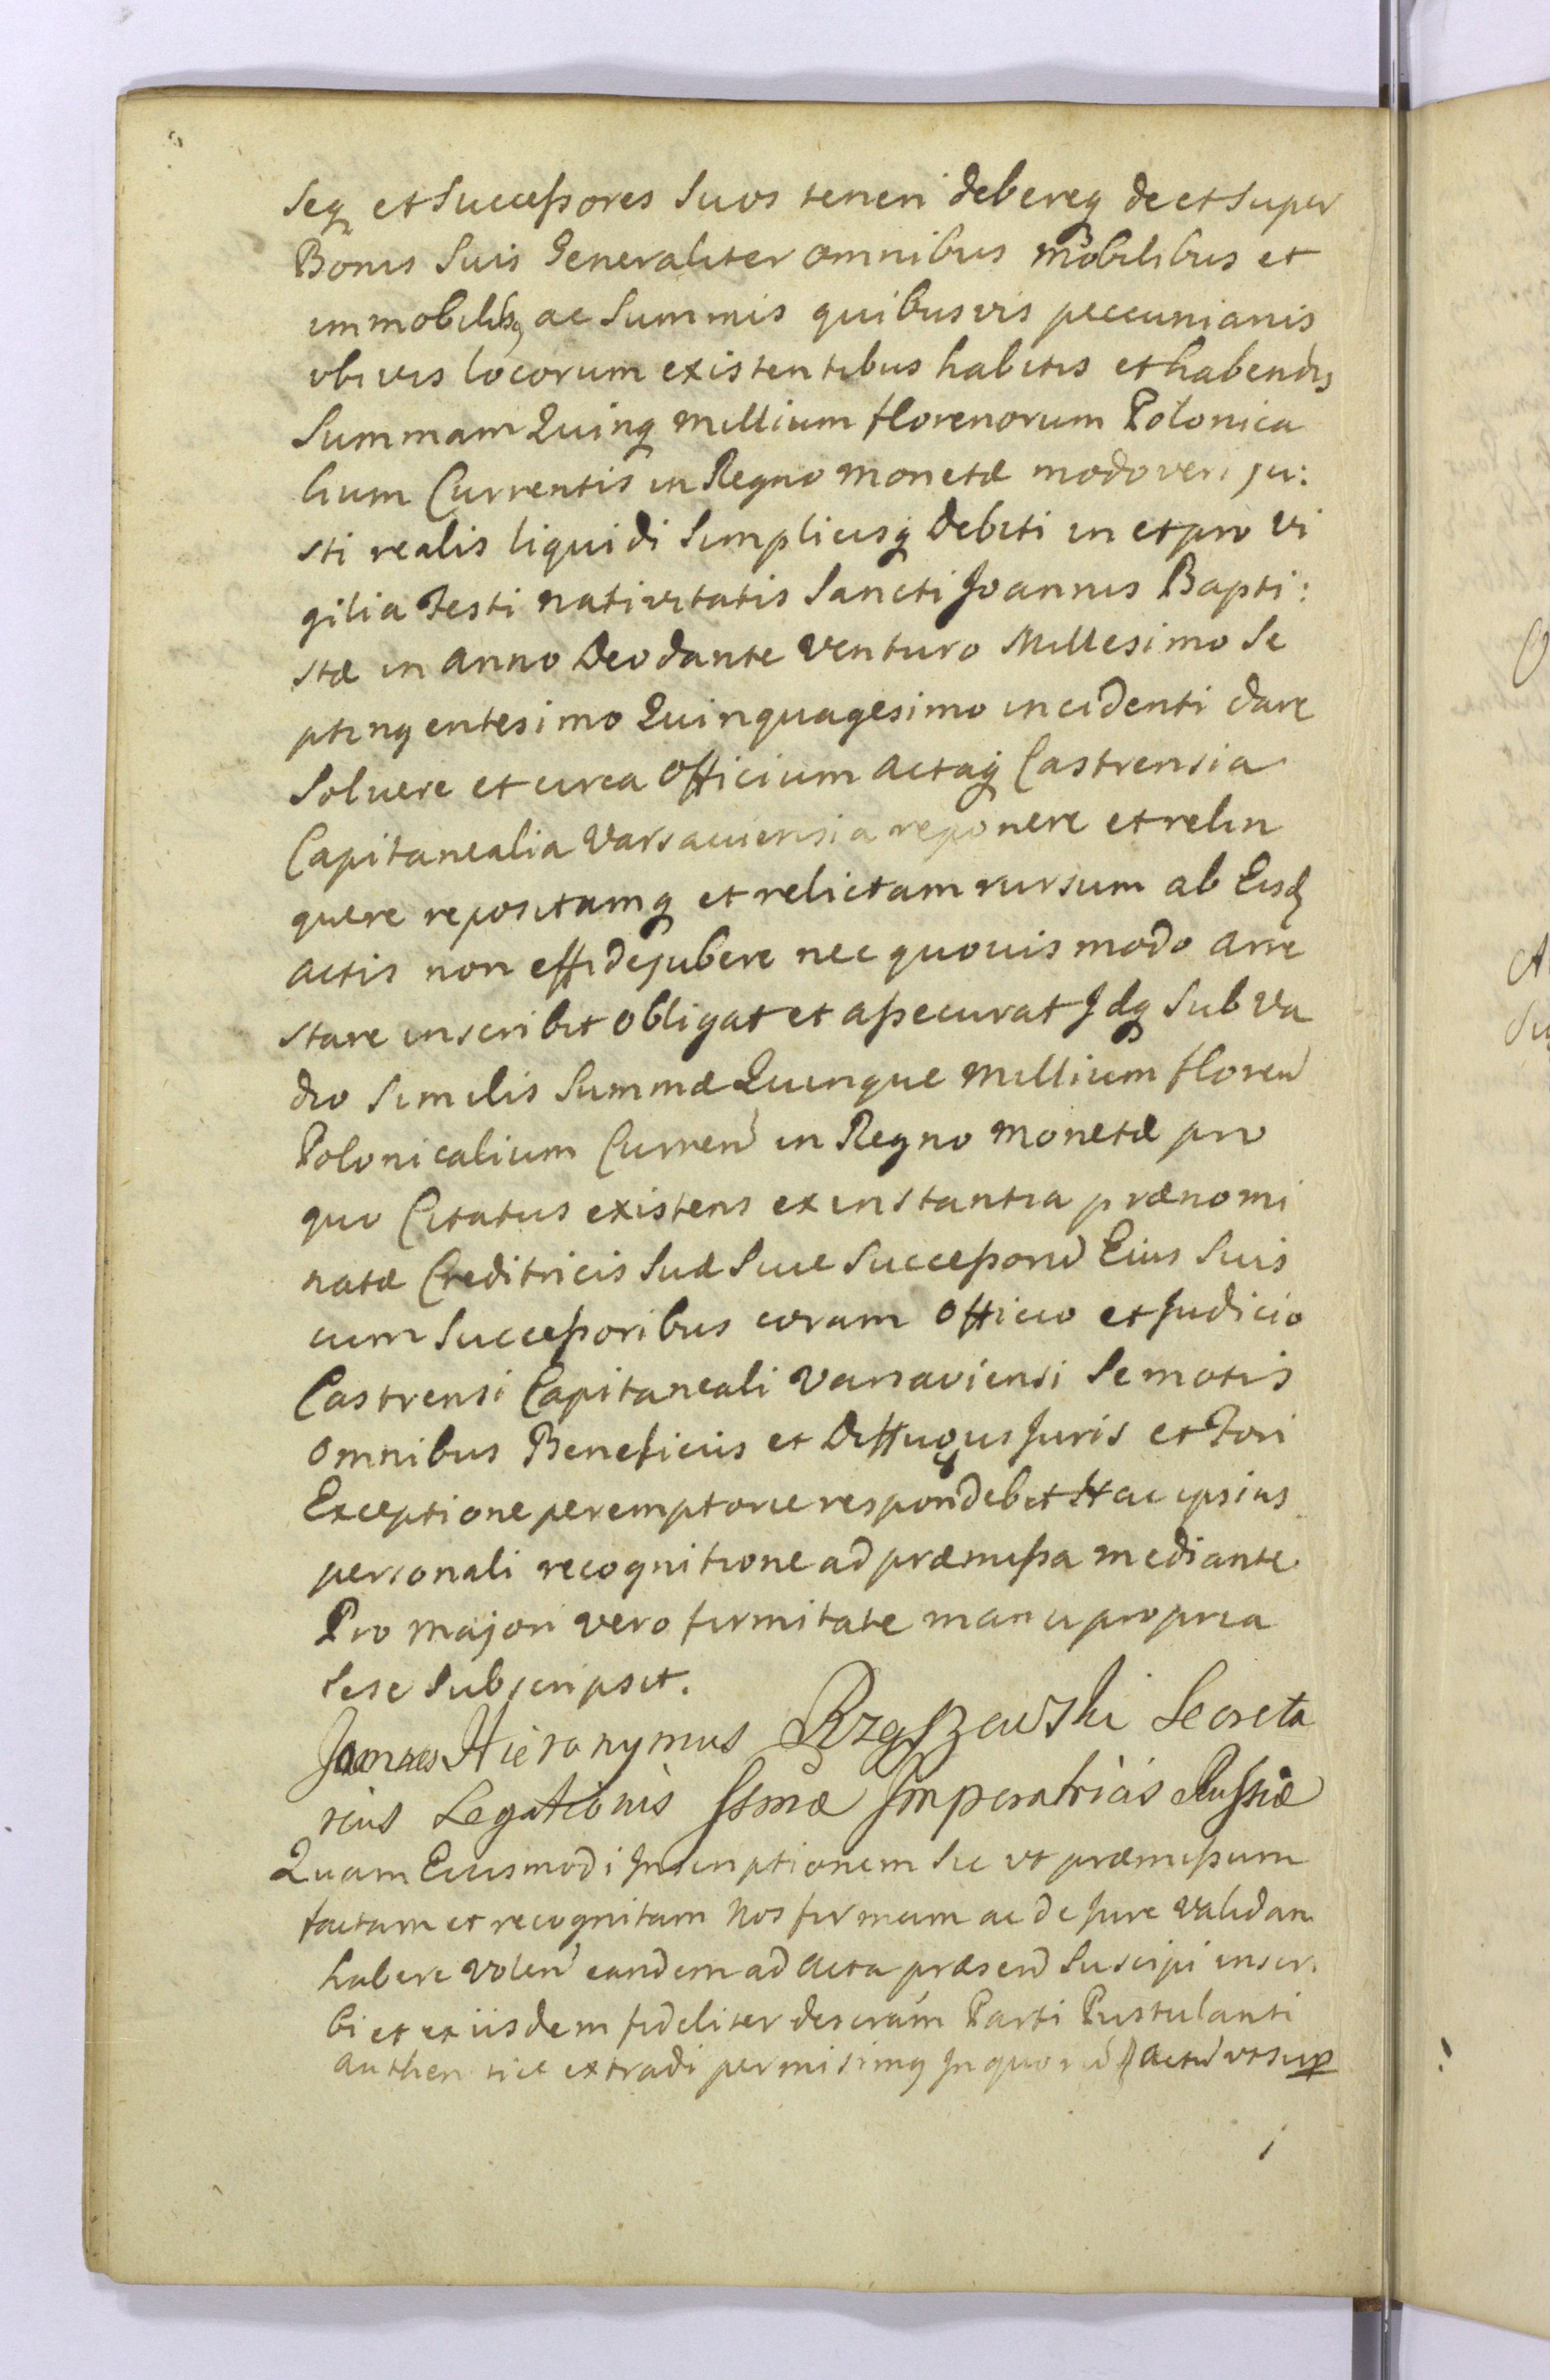 Seq et Successores Suos teneri debereq de et Super
Bonis Suis Generaliter omnibus mobilibus et
immobilibq ac Summis quibusvis peccuniariis
vbivis locorum existentibus habitis et habendis
Summam Quinq millium florenorum Polonica
lium Currentis in Regno monetæ modo veri ju:
sti realis liquidi Simplicisq Debiti in et pro Vi
gilia Festi nativitatis Sancti Joannis Bapti:
stæ in anno Deo dante Venturo Millesimo Se
ptingentesimo Quinquagesimo incidenti dare
Soluere et circa Officium actaq Castrensia
Capitanealia Varsaviensia reponere et relin
quere repositamq et relictam rursum ab Eisd
actis non effidejubere nec quouis modo arre
stare inscribit obligat et assecurat Idq Sub Va
dio Similis Summæ Quinque millium floren
Polonicalium Curren in Regno monetæ pro
quo Citatus existens ex instantia prænomi
natæ Creditricis Suæ Siue Successoru Eius Suis
cum Successoribus coram Officio et Judicio
Castrensi Capitaneali Varsaviensi Semotis
omnibus Beneficiis et Diffugiis Juris et Fori
Exceptione peremptorie respondebit Hac ipsius
personali recognitione ad præmissa mediante
Pro majori vero firmitate manu propria
Sese Subscripsit.
Joannes Hieronymus Rzęszewski Secreta
rius Legationis Ssmæ Imperatricis Russiæ
Quam Eiusmodi Inscriptionem Sic vt præmissum
factam et recognitam Nos firmam ac de Jure Validam
habere Volen eandem ad acta præsen Suscipi inscri
bi et ex iisdem fideliter descram Parti Pustulanti
authentice extradi permisimq In quoru actu vt sup